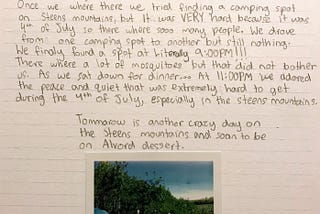 Once we where there we tried finding a camping spot
on Steens mountains, but It was VERY hard because it was
4th of July so there where sooo many people. We drove
from one camping spot to another but still nothing.
We finally found a spot at literally 9:00PM!!!
There where a lot of mosquitoes but that did not bother
us. As we sat down for dinner... At 11:00PM we adored
the peace and quiet that was extremely hard to get
during the 4th of July, especially in the steens mountains.
Tommarow is another crazy day on
the Steens mountains and soon to be
on Alvord dessert.